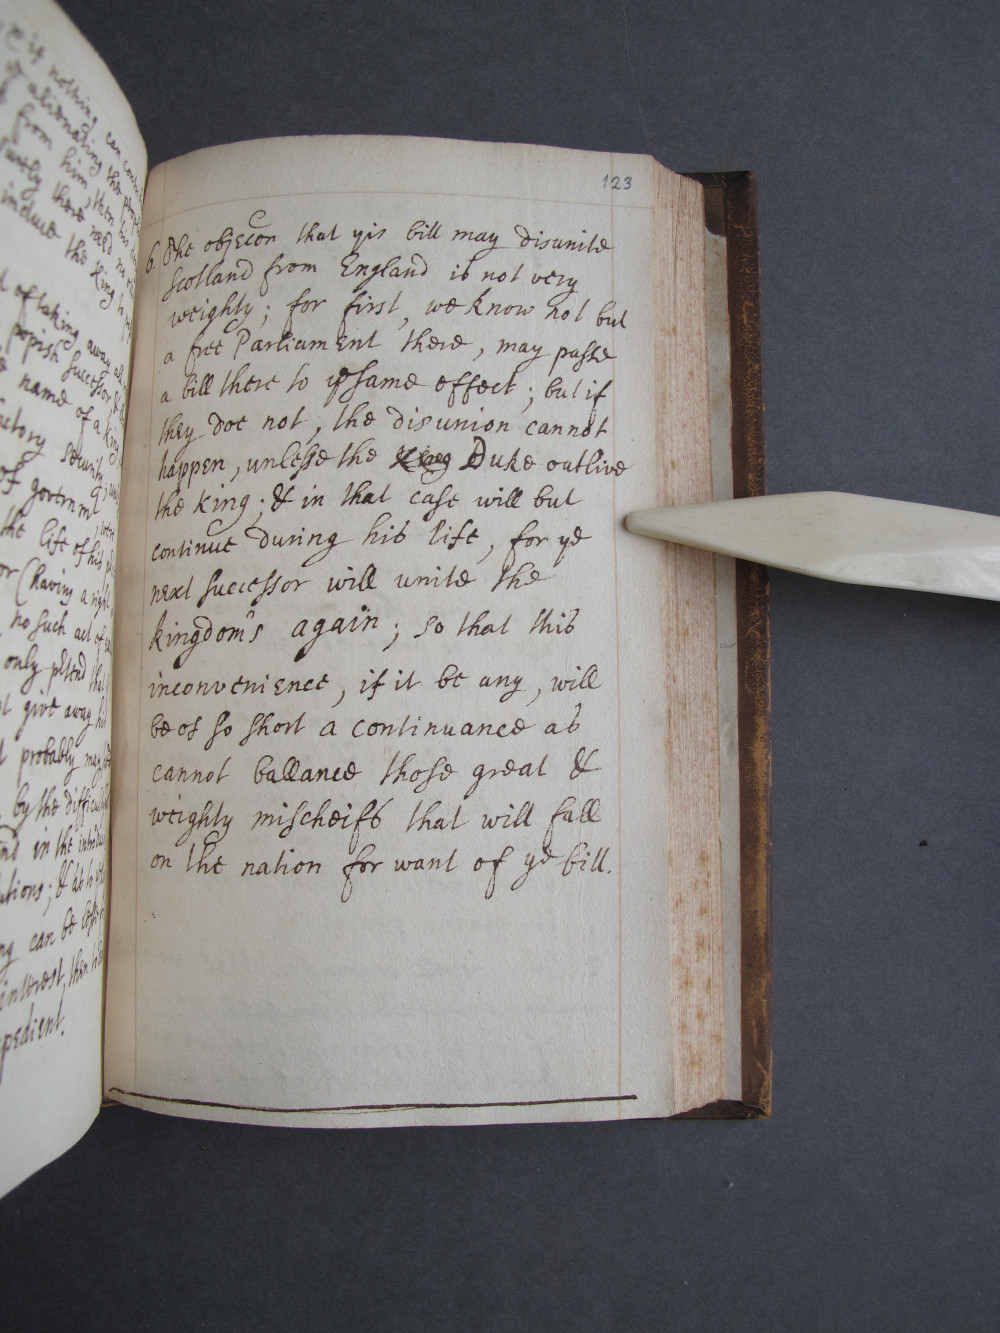 123
6. The objecon that yis bill may disunite
Scotland from England is not very
weighty; for first, we know not but
a free Parliament there, may passe
a bill there to ye same effect; but if
they doe not, the disunion cannot
happen, unlesse the King Duke outlive
the King; & in that case will but
continue during his life, for ye
next successor will unite the
kingdoms again; so that this
inconvenience, if it be any, will
be of so short a continuance as
cannot ballance those great &
weighty mischeifs that will fall
on the nation for want of ye bill.
if nothing can
alienating the
from him, then his
there need no
induce the King to
of taking away
popish successor, &
name of a King
security
of governmt
the life of his
or (having a right
no such act of
only ptend that
give away his
probably may
by the
in the
&
can be
interest, then
pedient.